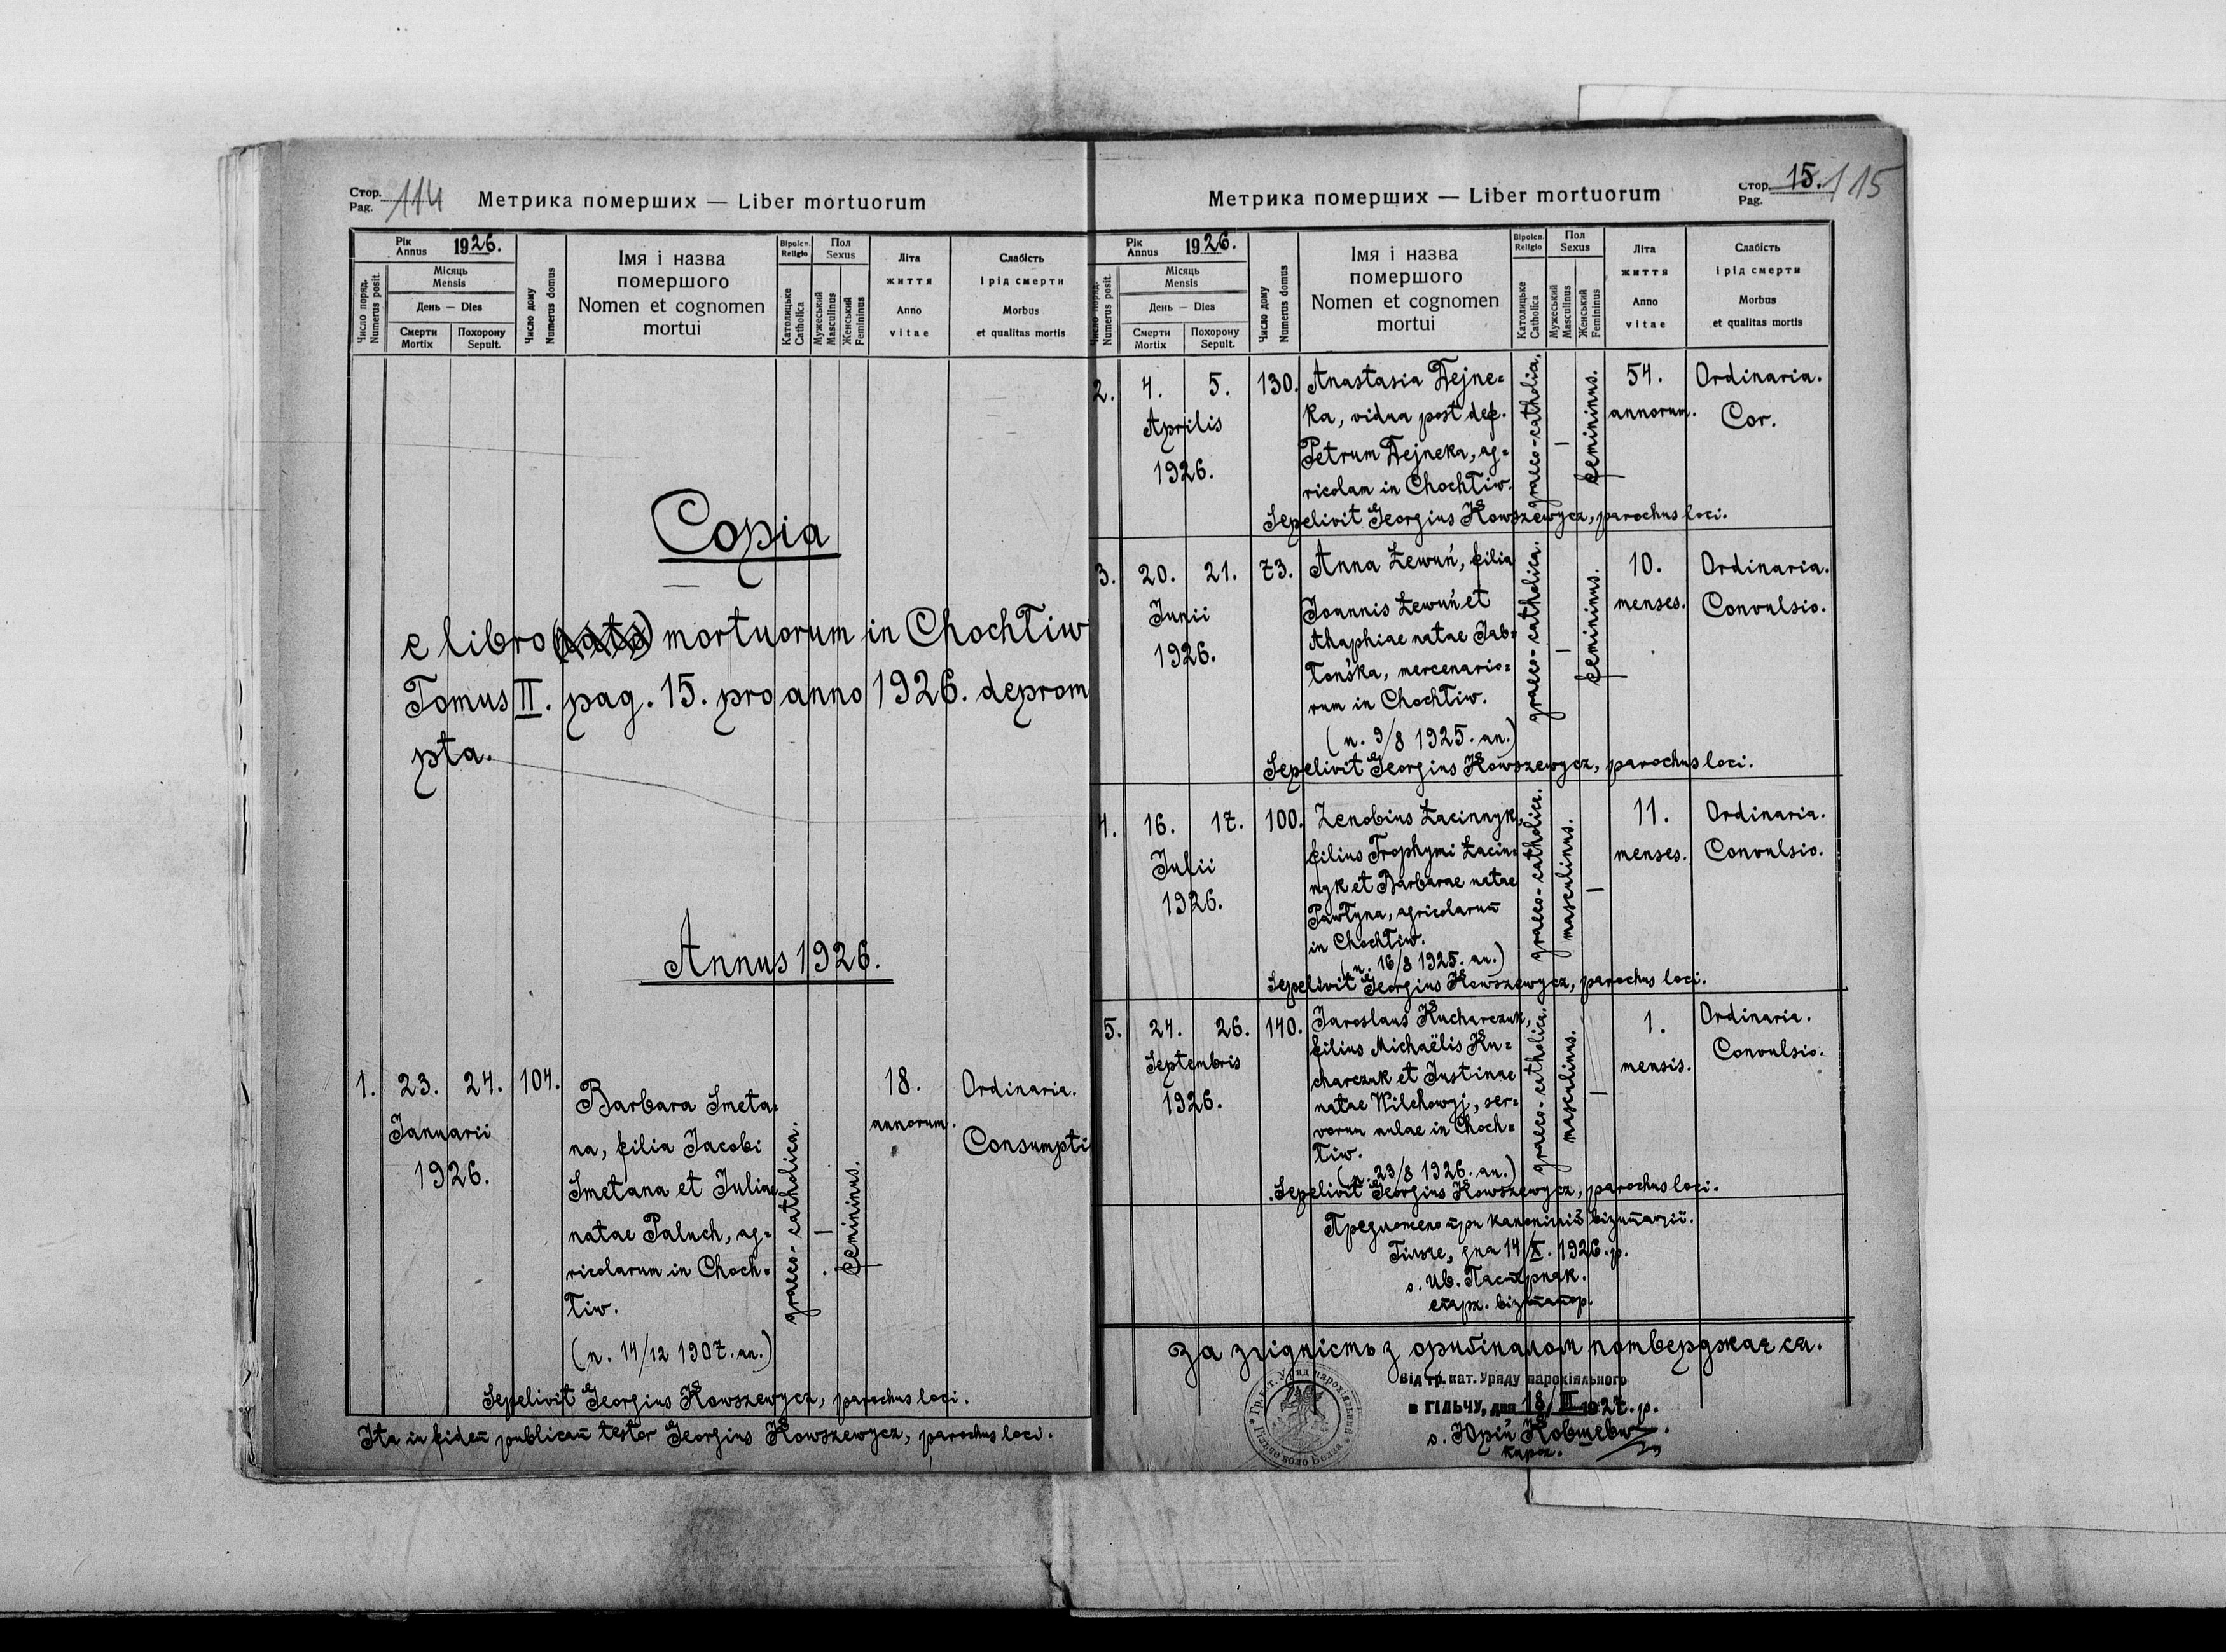 Стор.
Pag. 114
Метрика померших — Liber mortuorum
Рік
Annus 1926.
Число поряд.
Numerus posit.
Місяць
Mensis
День — Dies
Смерти
Mortix
Похорону
Sepult.
Число дому
Numerus domus
Імя і назва
помершого
Nomen et cognomen
mortui
Віроісп.
Religio
Католицьке
Catholica
Пол
Sexus
Мужеський
Masculinus
Женський
Femininus
Літа
життя
Anno
vitae
Слабість
і рід смерти
Morbus
et qualitas mortis
Copia
e libro mortuorum in Chochłiw
Tomus II. pag. 15. pro anno 1926. deprom
pta.
Annus 1926.
1. 23. 24. 104.
Januarii
1926.
Barbara Smeta=
na, filia Jacobi
Smetana et Juliae
natae Paluch, ag=
ricolarum in Choch=
łiw.
(n. 14/12 1907. an.)
graeco-catholica.
—
femininus.
18.
annorum.
Ordinaria.
Consumpti
Sepelivit Georgius Kowszewycz, parochus loci.
Ita in fidem publicam testor Georgius Kowszewycz, parochus loci.
Метрика померших — Liber mortuorum
Стор.
Pag. 15. 115
Рік
Annus 1926.
Число поряд.
Numerus posit.
Місяць
Mensis
День — Dies
Смерти
Mortix
Похорону
Sepult.
Число дому
Numerus domus
Імя і назва
помершого
Nomen et cognomen
mortui
Віроісп.
Religio
Католицьке
Catholica
Пол
Sexus
Мужеський
Masculinus
Женський
Femininus
Літа
життя
Anno
vitae
Слабість
і рід смерти
Morbus
et qualitas mortis
2. 4. 5. 130.
Aprilis
1926.
Anastasia Dejne=
ka, vidua post def.
Petrum Dejneka, ag=
ricolam in Chochłiw.
graeco-catholica.
—
femininus.
54.
annorum.
Ordinaria.
Cor.
Sepelivit Georgius Kowszewycz, parochus loci.
3. 20. 21. 73.
Junii
1926.
Anna Łewuń, filia
Joannis Łewuń et
Ahaphiae natae Jab=
łońska, mercenario=
rum in Chochłiw.
(n. 9/8 1925. an.)
graeco-catholica.
—
femininus.
10.
menses.
Ordinaria.
Convulsio.
Sepelivit Georgius Kowszewycz, parochus loci.
4. 16. 17. 100.
Julii
1926.
Zenobius Łacinnyk,
filius Trophymi Łacin=
nyk et Barbarae natae
Pawłyna, agricolarum
in Chochłiw.
(n. 16/8 1925. an.)
graeco-catholica.
masculinus.
—
11.
menses.
Ordinaria.
Convulsio.
Sepelivit Georgius Kowszewycz, parochus loci.
5. 24. 26. 140.
Septembris
1926.
Jaroslaus Kucharczuk,
filius Michaëlis Ku=
charczuk et Justinae
natae Wilchowyj, ser=
vorum aulae in Choch=
łiw.
(n. 23/8 1926. an.)
graeco-catholica.
masculinus.
—
1.
mensis.
Ordinaria.
Convulsio.
Sepelivit Georgius Kowszewycz, parochus loci.
Предложено при канонічній візитації.
Гільче, дня 14/X. 1926. р.
о. Ив. Пастернак.
епарх. візитатор.
За згідність з оригіналом потверджає ся.
Від гр. кат. Уряду парохіяльного
в ГІЛЬЧУ, дня 18/III 1927. р.
о. Юрій Ковшевич.
парох.